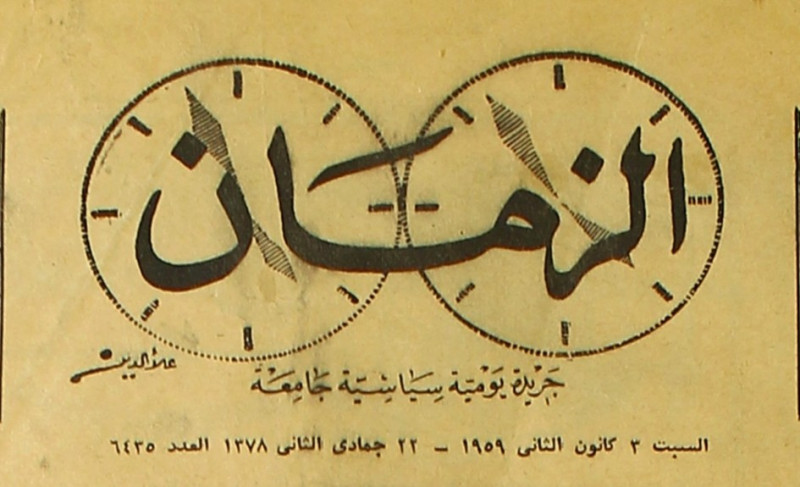 الزمان
علاء الدين
جريدة يومية سياسية جامعة
السبت ٣ كانون الثانى ١٩٥٩ – ٢٢ جمادى الثانى ١٣٧٨ العدد ٦٤٣٥